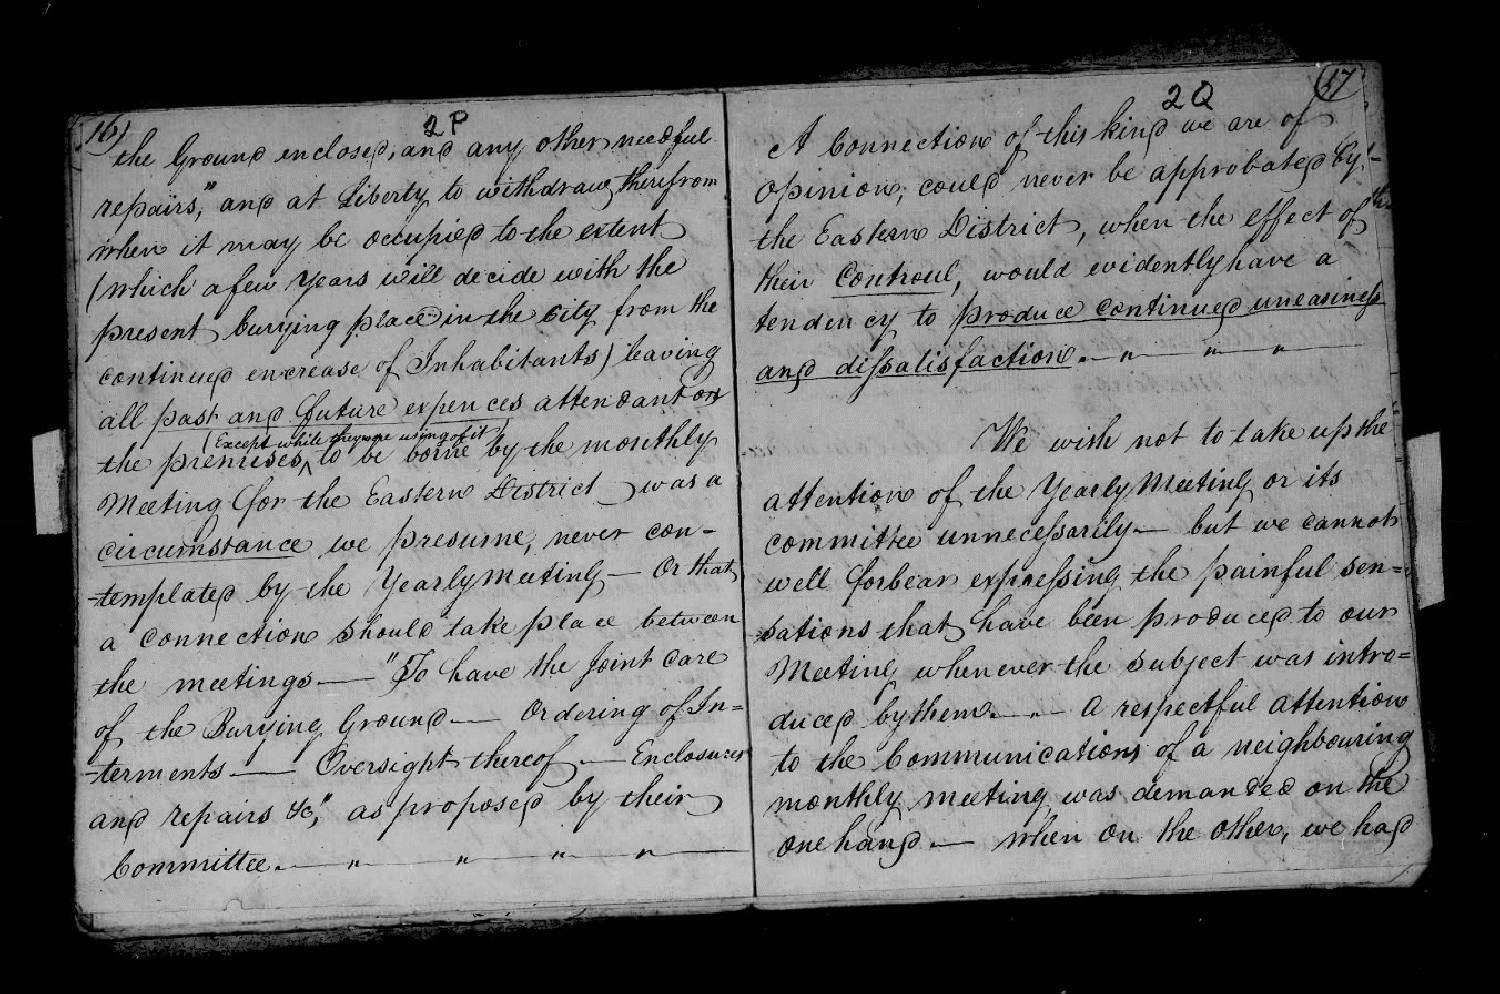 16)
2P
the Ground enclosed, and any other needful
repairs," and at Liberty to withdraw therefrom
when it may be occupied to the extent
(which a few years will decide with the
present burying place in the City from the
continued encrease of Inhabitants) leaving
all past and future expences attendant on
(Except while they were using of it)
the premises, ^ to be borne by the monthly
Meeting for the Eastern District was a
circumstance we presume, never con-
-templated by the Yearly Meeting — Or that
a connection should take place between
the meetings — "To have the Joint Care
of the Burying Ground — Ordering of In=
-terments — Oversight thereof — Enclosures
and repairs &c," as proposed by their
Committee. — " — " — " — " —
17
2Q
A Connection of this kind we are of
opinion, could never be approbated by
the Eastern District, when the effect of the
their Controul, would evidently have a
tendency to produce continued uneasiness
and dissatisfaction. — " — " — " —
We wish not to take up the
attention of the Yearly Meeting or its
committee unnecessarily — but we cannot
well forbear expressing the painful sen=
=sations that have been produced to our
Meeting whenever the subject was intro=
duced by them. — " — A respectful attention
to the Communications of a neighbouring
monthly meeting was demanded on the
one hand. — when on the other, we had